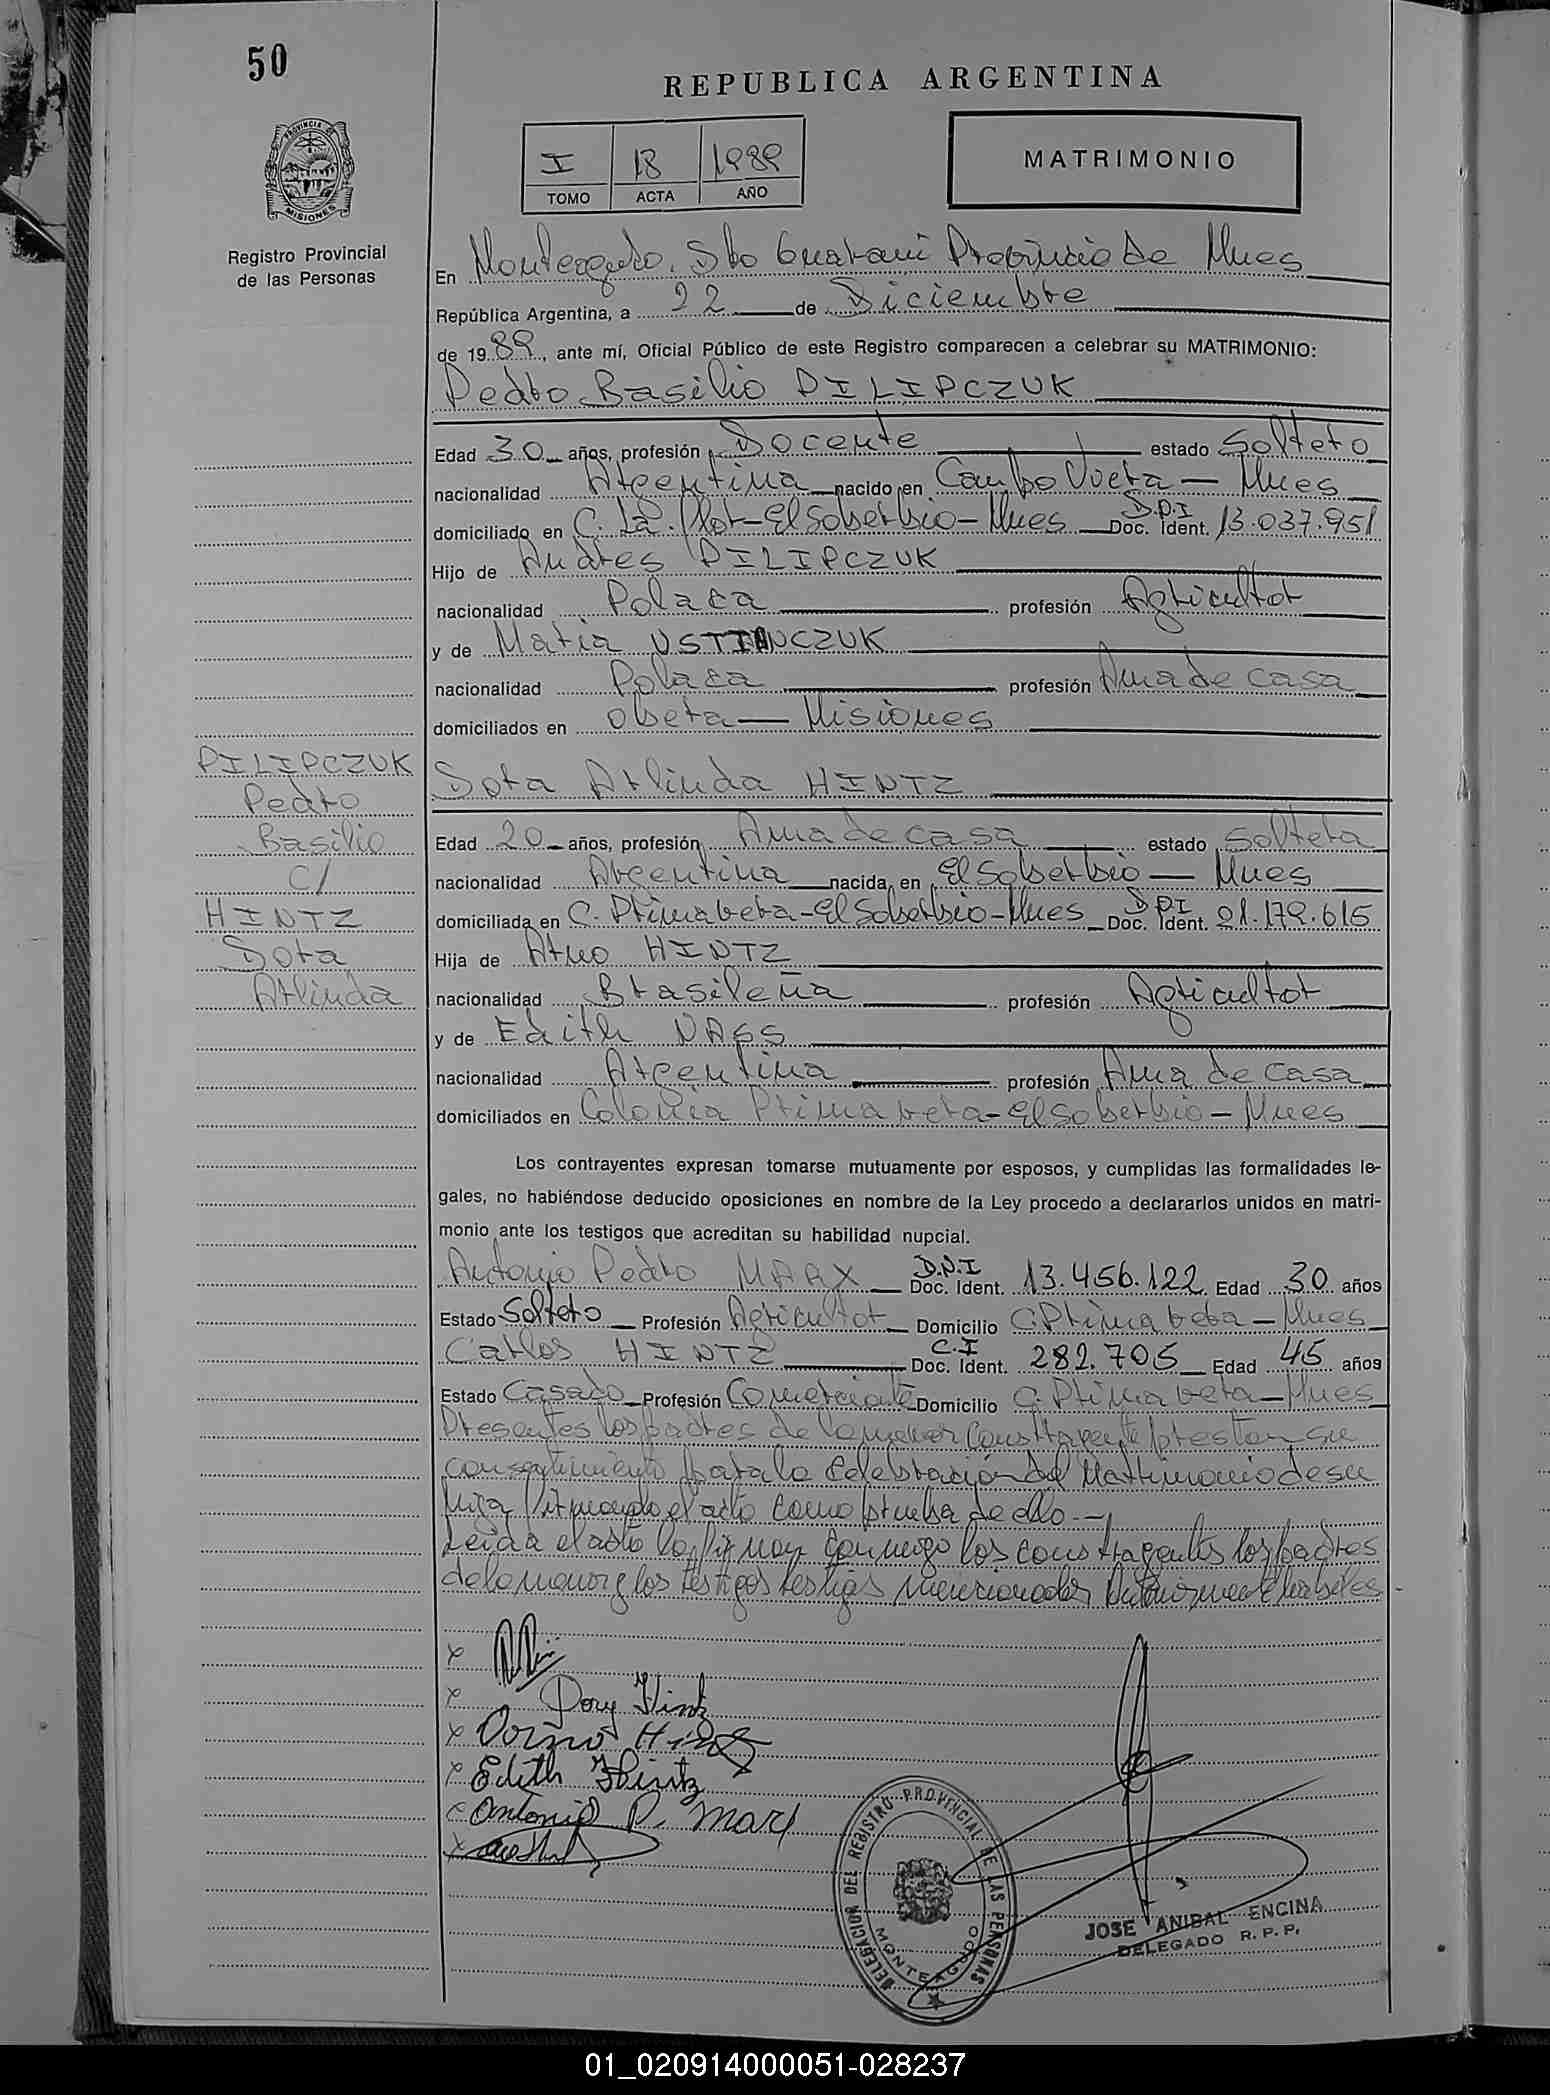 50
REPUBLICA ARGENTINA
I 18 1989
TOMO ACTA AÑO
MATRIMONIO
PROVINCIA DE MISIONES
Registro Provincial
de las Personas
En Monteagudo. Dto Guarani Provincia de Mnes
República Argentina, a 22 de Diciembre
de 1989, ante mí, Oficial Público de este Registro comparecen a celebrar su MATRIMONIO:
Pedro Basilio PILIPCZUK
Edad 30 años, profesión Docente estado Soltero
nacionalidad Argentina nacido en Campo Viera - Mnes
domiciliado en C. La Flor - El Soberbio - Mnes D.P.I Doc. Ident. 13.037.951
Hijo de Andres PILIPCZUK
nacionalidad Polaca profesión Agricultor
y de Maria USTIANCZUK
nacionalidad Polaca profesión Ama de casa
domiciliados en Obera - Misiones
PILIPCZUK
Pedro
Basilio
C/
HINTZ
Dora
Arlinda
Dora Arlinda HINTZ
Edad 20 años, profesión Ama de casa estado Soltera
nacionalidad Argentina nacida en El Soberbio - Mnes
domiciliada en C. Primavera - El Soberbio - Mnes DPI Doc. Ident. 21.179.615
Hija de Arno HINTZ
nacionalidad Brasileña profesión Agricultor
y de Edith NASS
nacionalidad Argentina profesión Ama de casa
domiciliados en Colonia Primavera - El Soberbio - Mnes
Los contrayentes expresan tomarse mutuamente por esposos, y cumplidas las formalidades le-
gales, no habiéndose deducido oposiciones en nombre de la Ley procedo a declararlos unidos en matri-
monio ante los testigos que acreditan su habilidad nupcial.
Antonio Pedro MARX D.P.I Doc. Ident. 13.456.122 Edad 30 años
Estado Soltero Profesión Agricultor Domicilio C. Primavera - Mnes
Carlos HINTZ C.I Doc. Ident. 282.705 Edad 45 años
Estado Casado Profesión Comerciante Domicilio C. Primavera - Mnes
Presentes los padres de la menor contrayente prestan su
consentimiento para la Celebración del Matrimonio de su
hija firmando el acta como prueba de ello. -
Leida el acta la firman conmigo los contrayentes los padres
de la menor y los testigos testigos mencionados
Dory Hintz
Edith Hintz
Antonio P. Marx
DELEGACION DEL REGISTRO PROVINCIAL DE LAS PERSONAS
MONTEAGUDO
JOSE ANIBAL ENCINA
DELEGADO R. P. P.
01_020914000051-028237